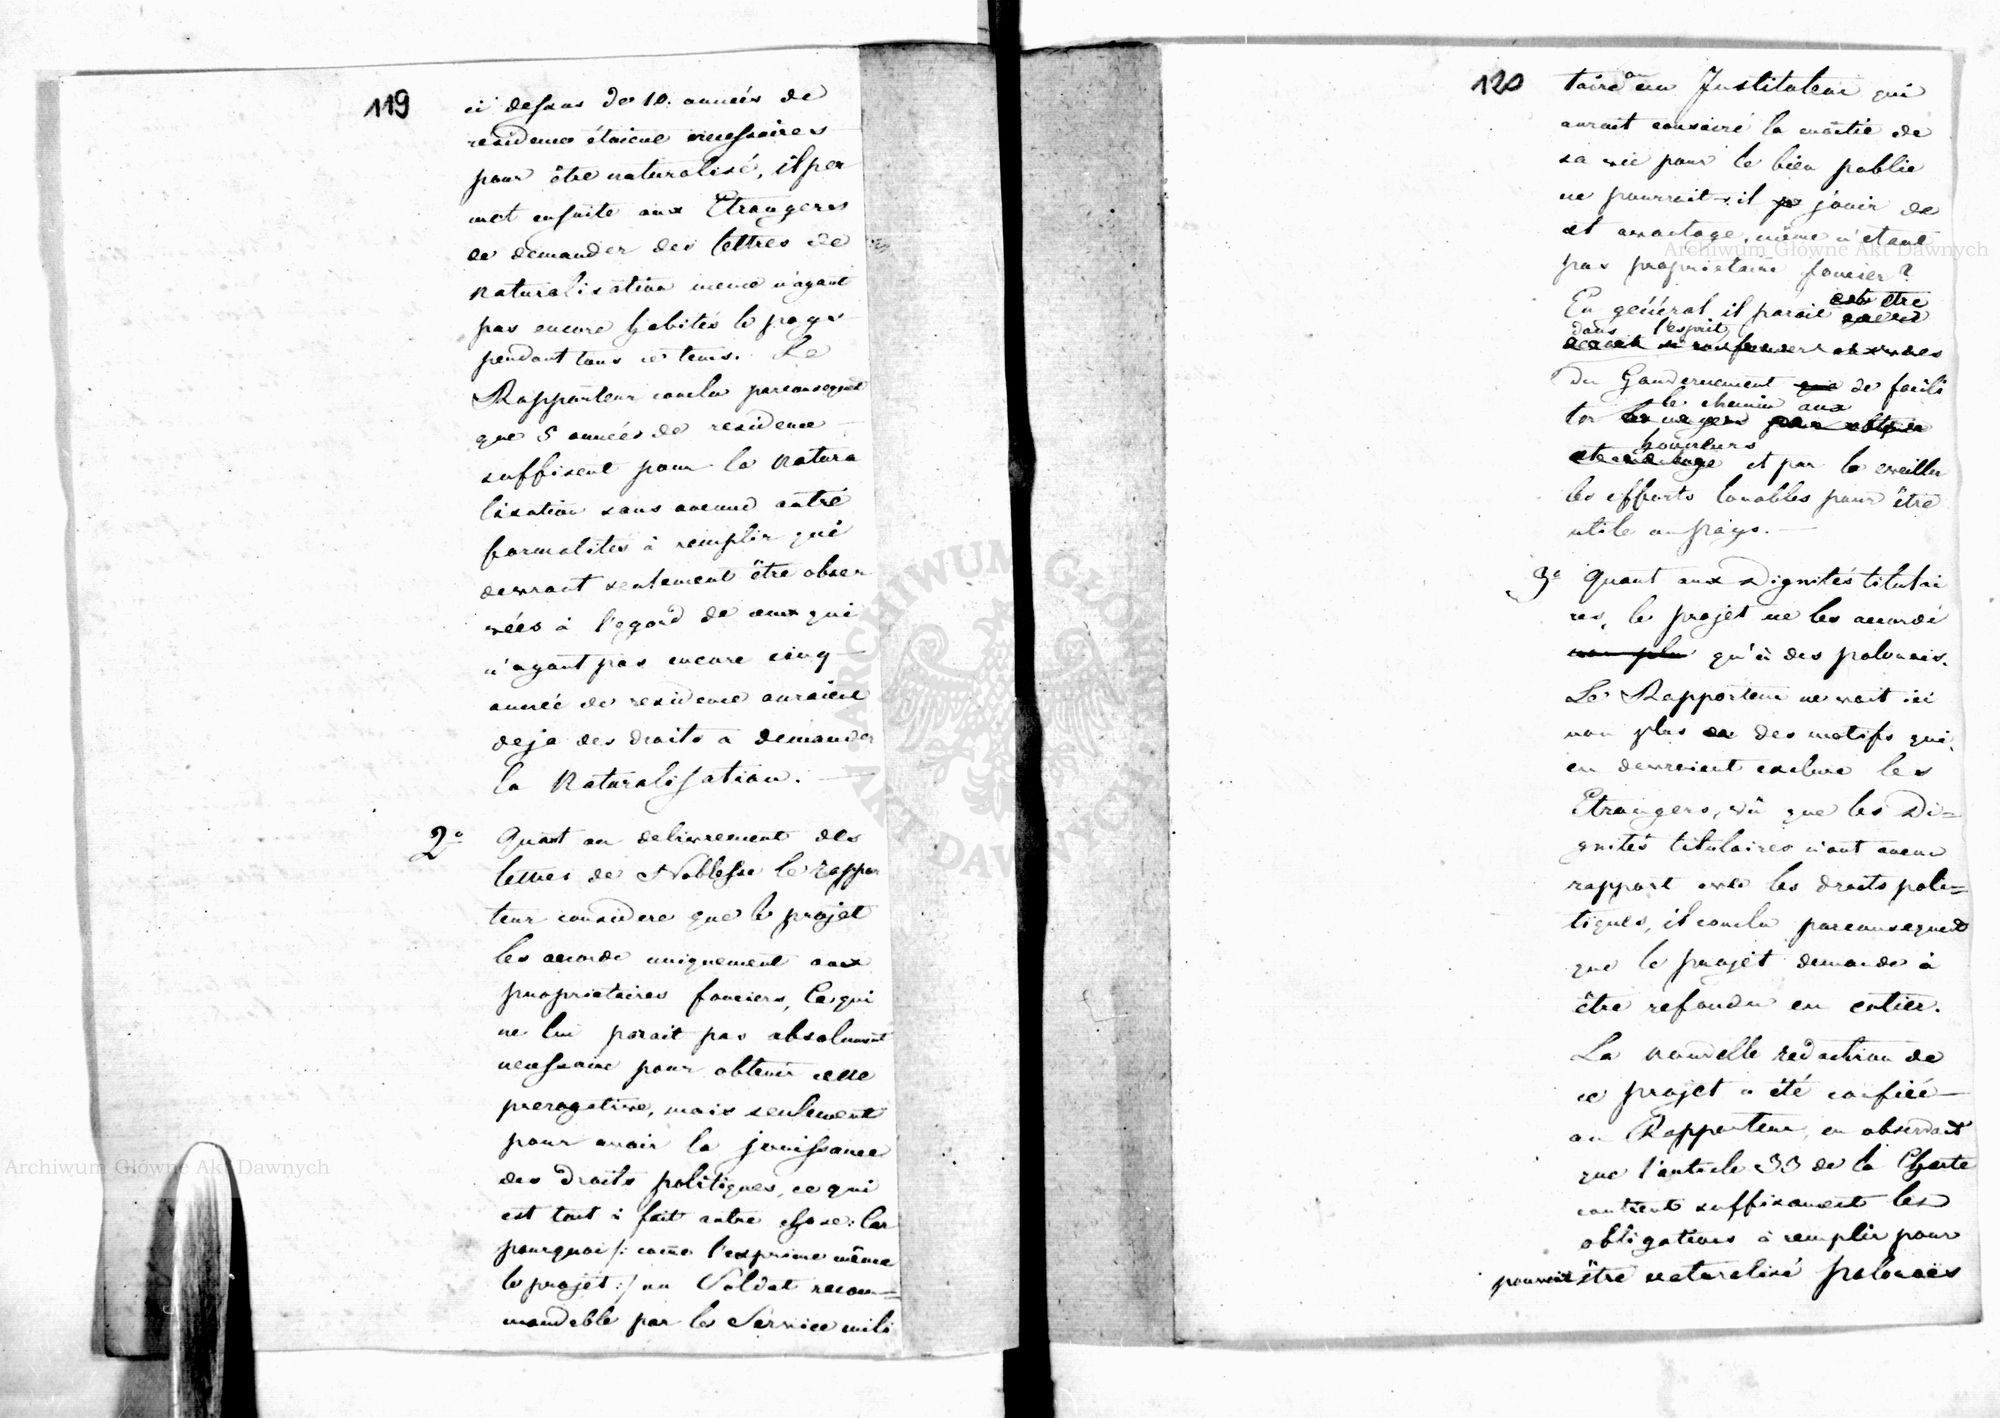 119
ci dessus de 10. années de
residence étoient necessaires
pour être naturalisé, il per
met ensuite aux Etrangeres
de demander des lettres de
naturalisation meme n'ayant
pas encore habités le pays
pendant tous ce tems. Le
Rapporteur conclu parconsequent
que 5 années de residence
suffisent pour la natura
lisation sans aucune autre
formalités à remplir qui
devront seulement être obser
vées à l'egard de ceux qui
n'ayant pas encore cinq
année de residence auraient
deja des droits a demander
la Naturalisation. —
2° Quant au delivrement des
lettres de Noblesse le rappor
teur considere que le projet
les accorde uniquement aux
proprietaires fonciers, ce qui
ne lui parait pas absolument
necessaire pour obtenir cette
prerogative, mais seulement
pour avoir la jouissance
des droits politiques, ce qui
est tout à fait autre chose: Car
pourquoi /: come l'exprime même
le projet :/ un Soldat recom=
mandable par le Service mili
120
taire ou un Instituteur qui
aurait consacré la moitié de
sa vie pour le bien public
ne pourrait-il jouir de
cet avantage, même n'étant
pas proprietaire foncier?
En général il parait être
dans l'esprit
du Gouvernement de facili
le chemin aux
ter
honneurs
et par la eveiller
les efforts louables pour être
utile au pays. —
3° Quant aux Dignités titulai
res, le projet ne les accorde
non plus qu'à des polonais.
Le Rapporteur ne voit ici
non plus des motifs qui
en devroient exclure les
Etrangers, vû que les Di=
gnités titulaires n'ont aucun
rapport avec les droits poli=
tiques, il conclu parconsequent
que le projet demande à
être refondu en entier.
La nouvelle redaction de
ce projet a été confiée —
au Rapporteur, en observant
que l'article 33 de la Charte
contient suffisament les
obligations à remplir pour
pouvoir être naturalisé polonais
Archiwum Główne Akt Dawnych
Archiwum Główne Akt Dawnych
ARCHIWUM GŁÓWNE AKT DAWNYCH